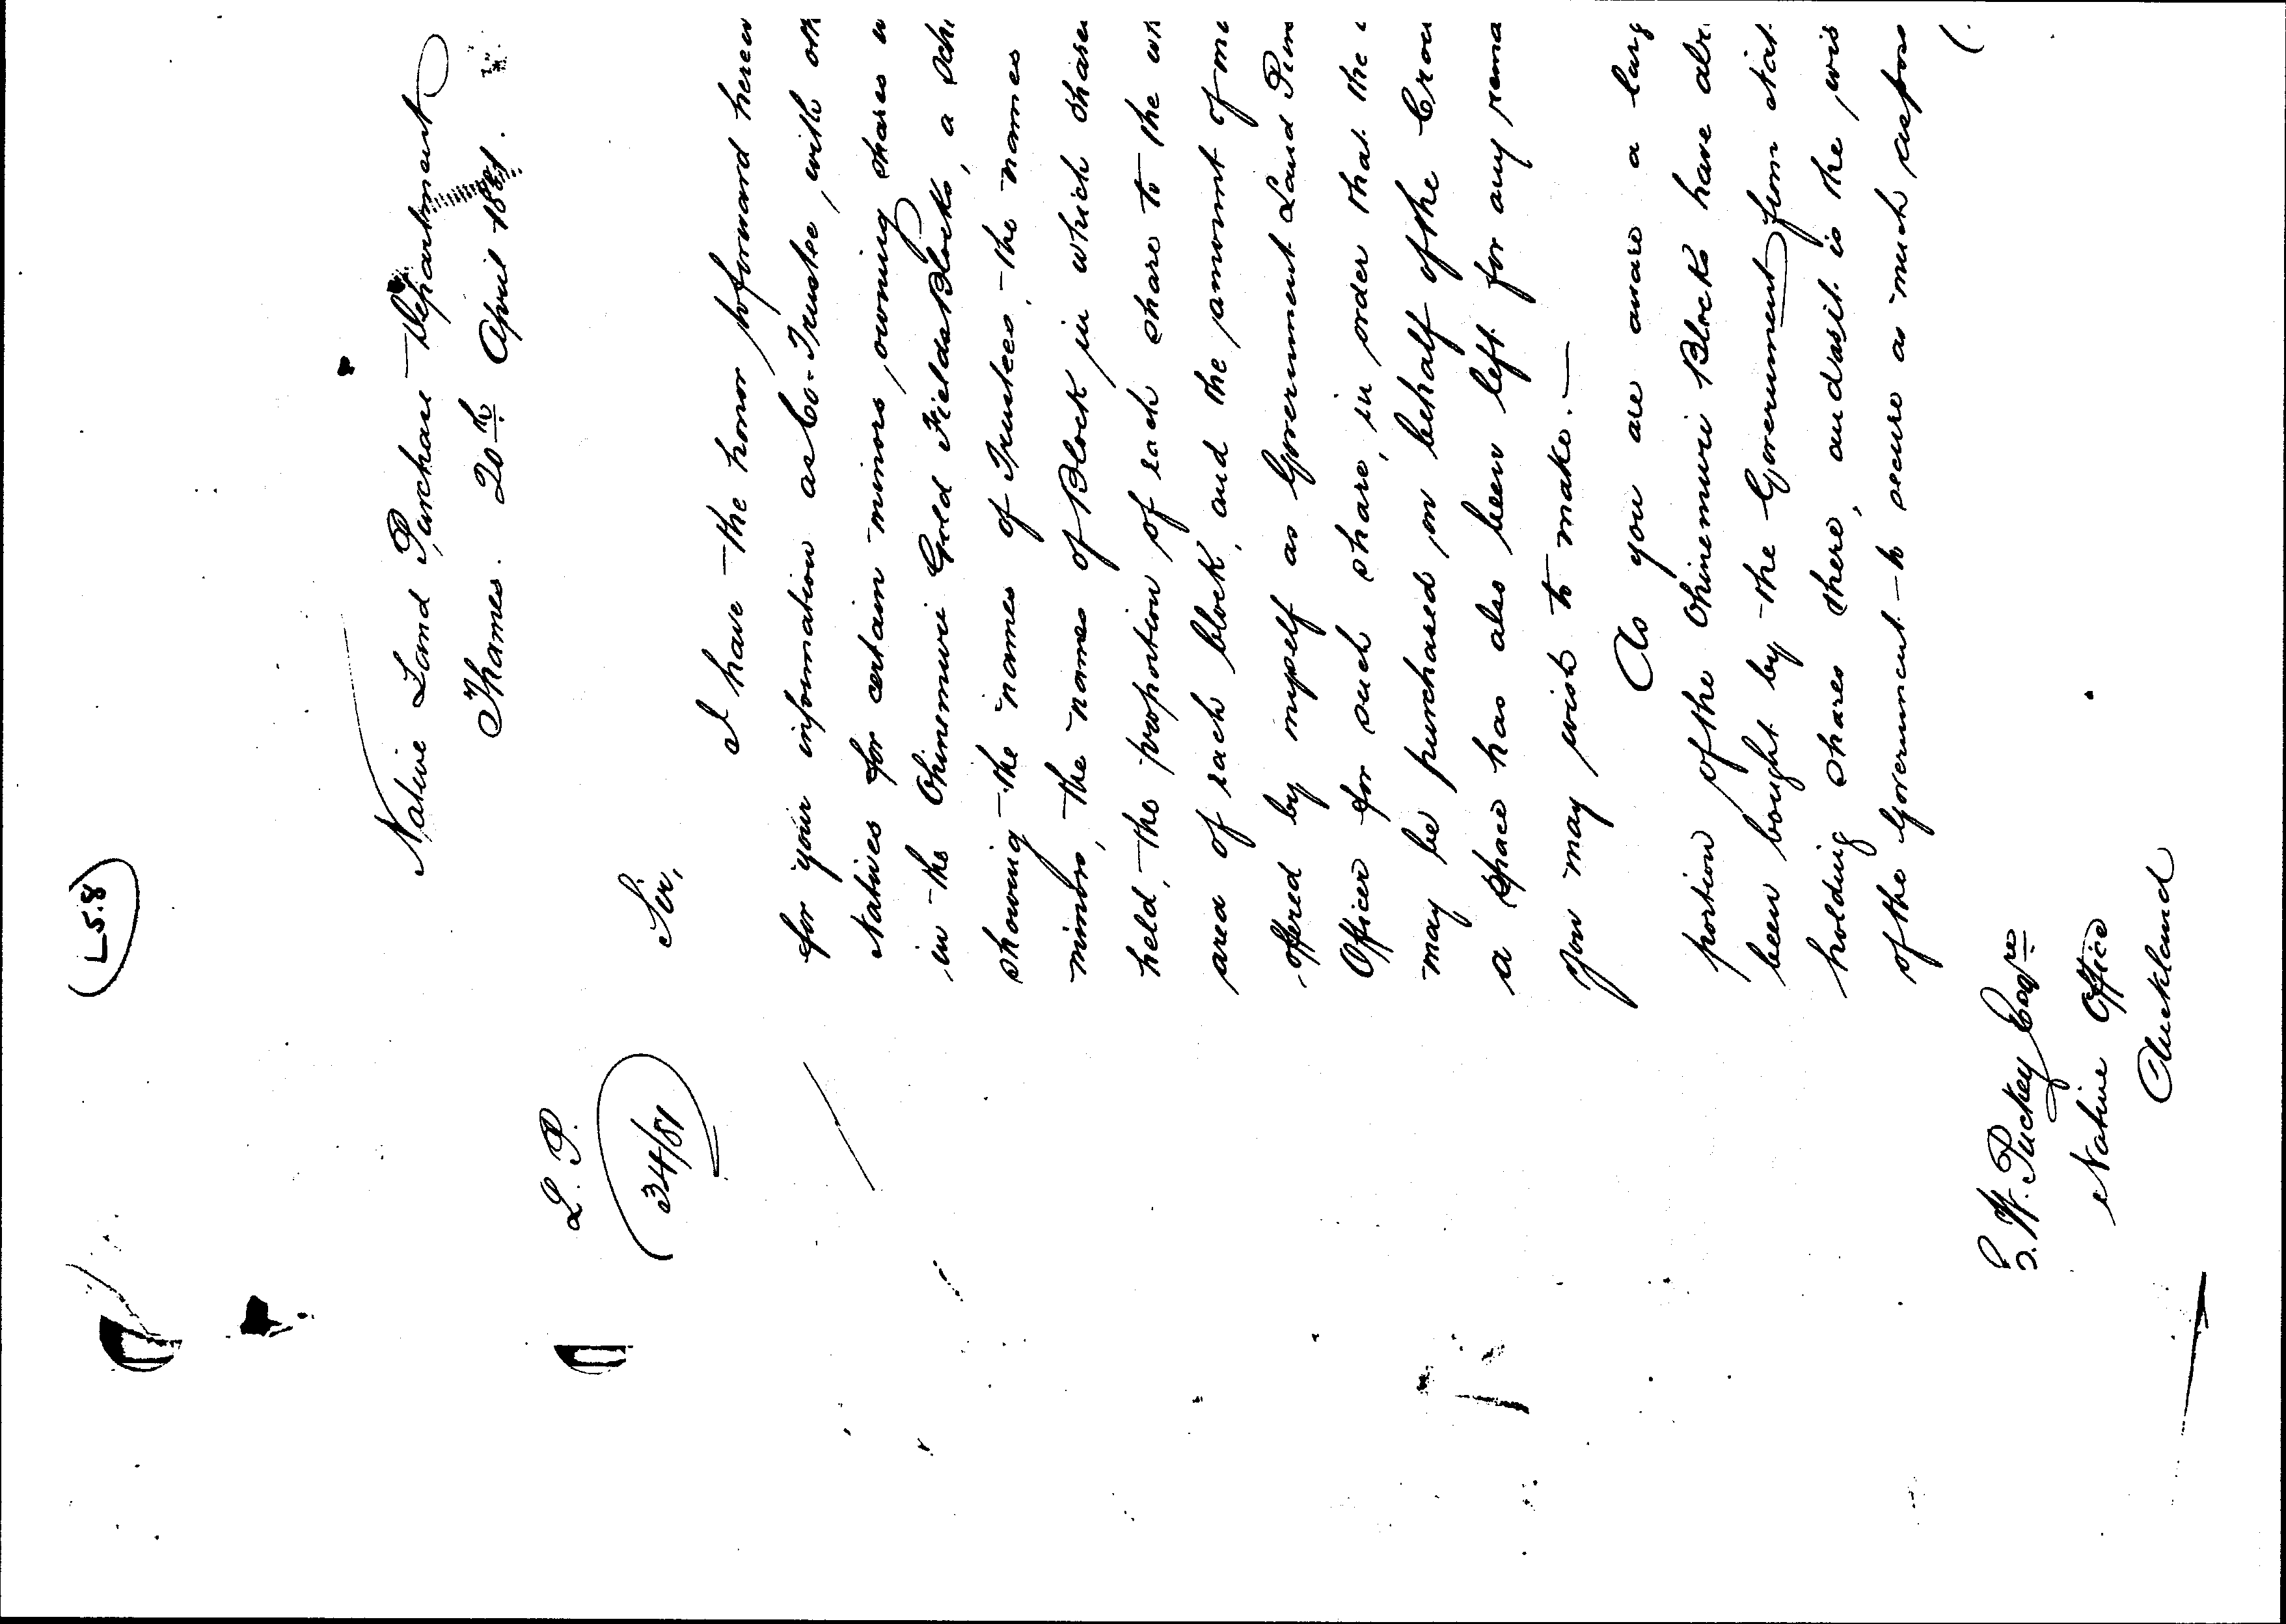 L5.8
Native Land Purchase Department
Thames. 20th April 1881.
L. P.
34/81
Sir,
I have the honor to forward herew
for your information as Co-Trustee, with oth
Natives for certain minors, owning shares w
in the Ohinemuri Gold Fields Blocks, a Sche
showing the names of Trustees, the names
minors, the names of Block in which share
held, the proportion of each share to the wh
area of each block, and the amount of mo
offered by myself as Government Land Pur
Officer for such share, in order that the
may be purchased on behalf of the Crow
a space has also been left for any rema
you may wish to make.—
As you are aware a larg
portion of the Ohinemuri Blocks have alr
been bought by the Government from Nat
holding shares there, and as it is the wis
of the Government to secure as much as pos
E. W. Puckey Esqre
Native Office
Auckland